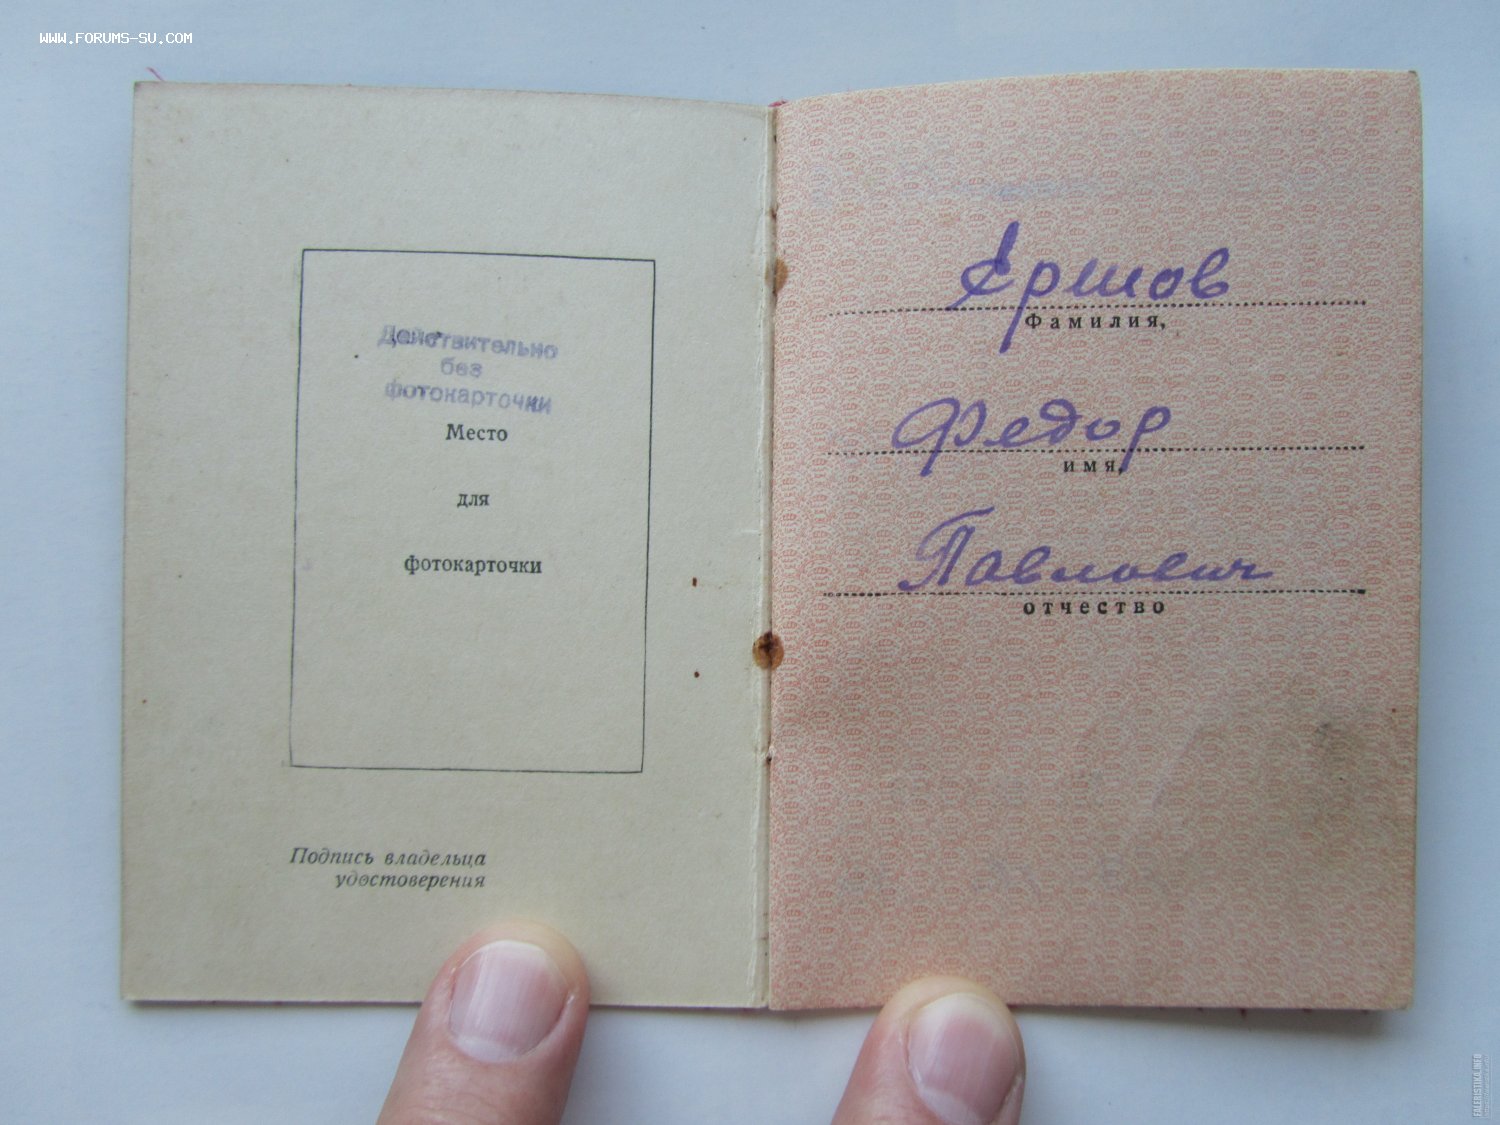 WWW.FORUMS-SU.COM
Действительно
без
фотокарточки
Место
для
фотокарточки
Подпись владельца
удостоверения
Ершов
Фамилия,
Федор
имя,
Павлович
отчество
FALERISTIKA.INFO